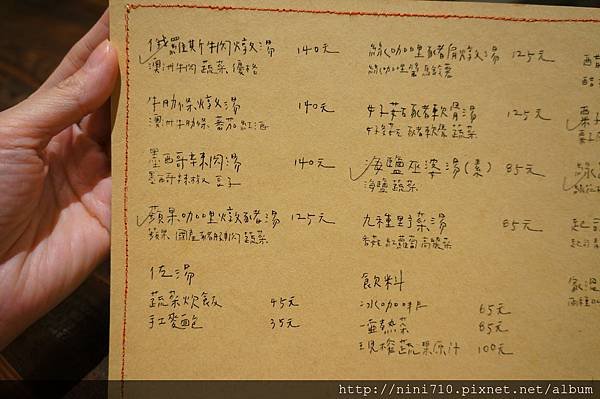 俄羅斯牛肉燉湯 140元
澳洲牛肉 蔬菜 優格
牛肋條燉湯 140元
澳洲牛肋條 蕃茄 紅酒
墨西哥辣肉湯 140元
墨西哥辣椒 豆子
蘋果咖哩燉豬湯 125元
蘋果 國產豬腱肉 蔬菜
佐湯
蔬菜炊飯 45元
手工麥麵包 35元
綠咖哩豬肩燉湯 125元
綠咖哩醬 馬鈴薯
牛蒡豬軟骨湯 125元
牛蒡 豬軟骨 蔬菜
海鹽巫婆湯(素) 85元
海鹽 蔬菜
九種野菜湯 85元
香菇 紅蘿蔔 高麗菜
飲料
冰咖啡 65元
一壺熱茶 85元
現榨蔬果原汁 100元
http://nini710.pixnet.net/album